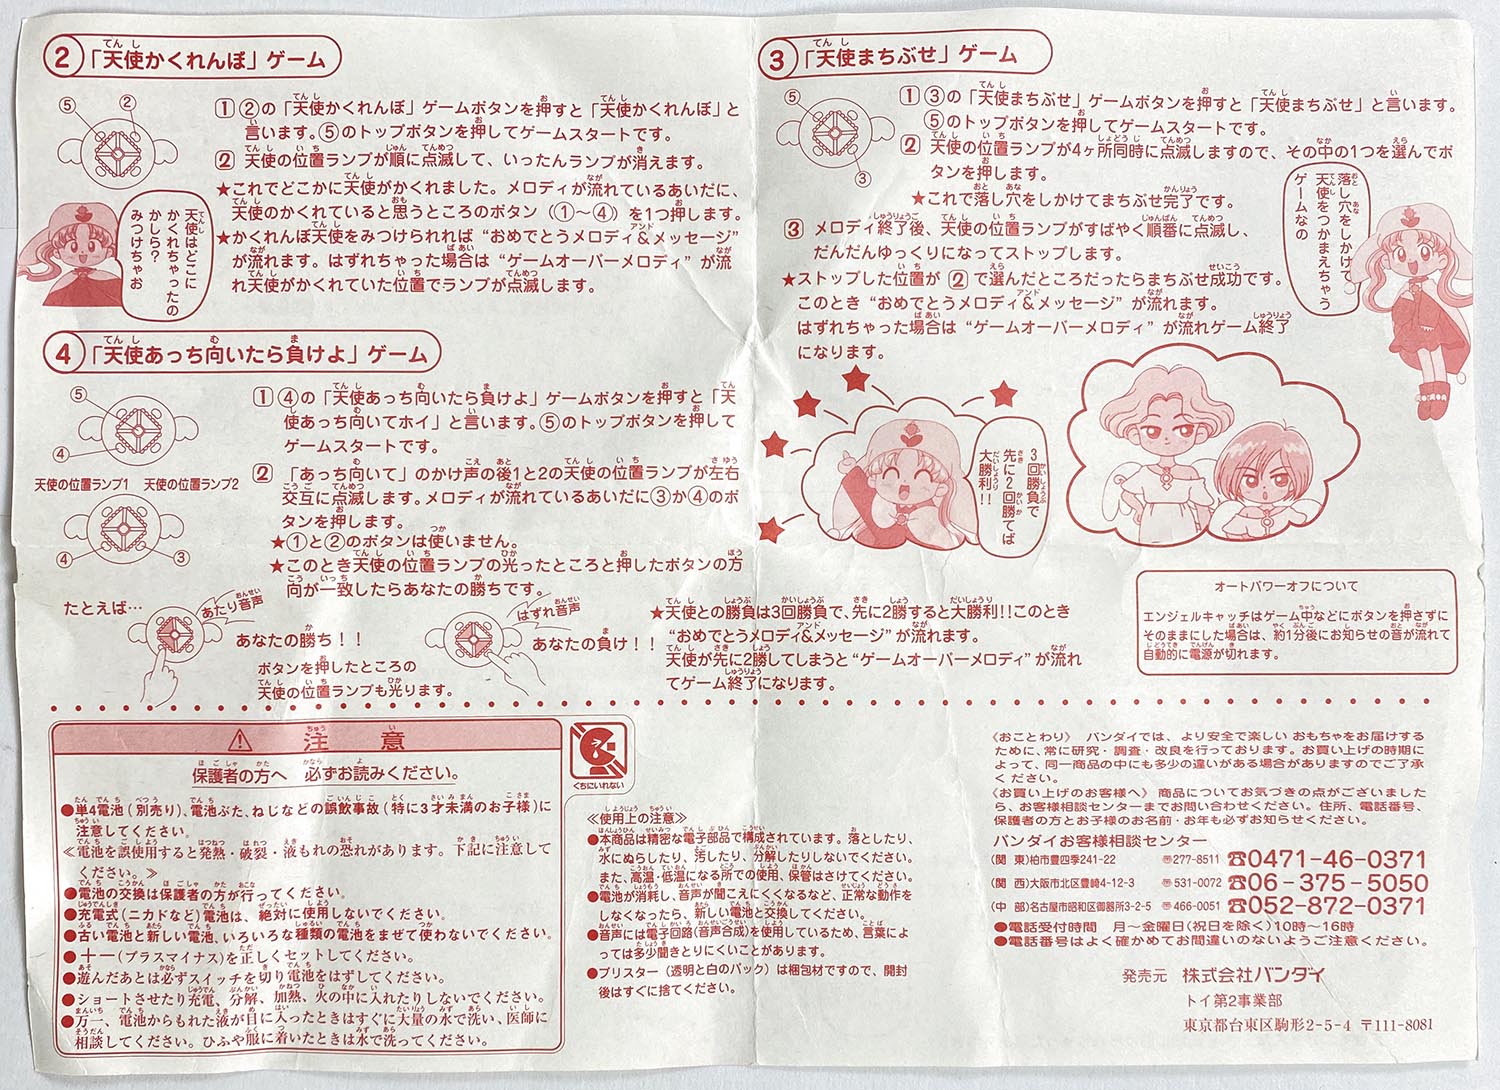 ②「天使かくれんぼ」ゲーム
⑤
②
1 ②の「天使かくれんぼ」ゲームボタンを押すと「天使かくれんぼ」と
言います。⑤のトップボタンを押してゲームスタートです。
2 天使の位置ランプが順に点滅して、いったんランプが消えます。
★これでどこかに天使がかくれました。メロディが流れているあいだに、
天使のかくれていると思うところのボタン（①〜④）を1つ押します。
★かくれんぼ天使をみつけられれば“おめでとうメロディ&メッセージ”
が流れます。はずれちゃった場合は“ゲームオーバーメロディ”が流
れ天使がかくれていた位置でランプが点滅します。
天使はどこに
かくれちゃったの
かしら？
みつけちゃお
③「天使まちぶせ」ゲーム
⑤
③
1 ③の「天使まちぶせ」ゲームボタンを押すと「天使まちぶせ」と言います。
⑤のトップボタンを押してゲームスタートです。
2 天使の位置ランプが4ヶ所同時に点滅しますので、その中の1つを選んでボ
タンを押します。
★これで落し穴をしかけてまちぶせ完了です。
3 メロディ終了後、天使の位置ランプがすばやく順番に点滅し、
だんだんゆっくりになってストップします。
★ストップした位置が 2 で選んだところだったらまちぶせ成功です。
このとき“おめでとうメロディ&メッセージ”が流れます。
はずれちゃった場合は“ゲームオーバーメロディ”が流れゲーム終了
になります。
落し穴をしかけて
天使をつかまえちゃう
ゲームなの
④「天使あっち向いたら負けよ」ゲーム
⑤
④
天使の位置ランプ1 天使の位置ランプ2
④
③
1 ④の「天使あっち向いたら負けよ」ゲームボタンを押すと「天
使あっち向いてホイ」と言います。⑤のトップボタンを押して
ゲームスタートです。
2 「あっち向いて」のかけ声の後1と2の天使の位置ランプが左右
交互に点滅します。メロディが流れているあいだに③か④のボ
タンを押します。
★①と②のボタンは使いません。
★このとき天使の位置ランプの光ったところと押したボタンの方
向が一致したらあなたの勝ちです。
たとえば…
あたり音声
あなたの勝ち！！
ボタンを押したところの
天使の位置ランプも光ります。
はずれ音声
あなたの負け！！
3回勝負で
先に2回勝てば
大勝利!!
★天使との勝負は3回勝負で、先に2勝すると大勝利!!このとき
“おめでとうメロディ&メッセージ”が流れます。
天使が先に2勝してしまうと“ゲームオーバーメロディ”が流れ
てゲーム終了になります。
オートパワーオフについて
エンジェルキャッチはゲーム中などにボタンを押さずに
そのままにした場合は、約1分後にお知らせの音が流れて
自動的に電源が切れます。
⚠ 注意
保護者の方へ 必ずお読みください。
●単4電池（別売り）、電池ぶた、ねじなどの誤飲事故（特に3才未満のお子様）に
注意してください。
≪電池を誤使用すると発熱・破裂・液もれの恐れがあります。下記に注意して
ください。≫
●電池の交換は保護者の方が行ってください。
●充電式（ニカドなど）電池は、絶対に使用しないでください。
●古い電池と新しい電池、いろいろな種類の電池をまぜて使わないでください。
●＋－（プラスマイナス）を正しくセットしてください。
●遊んだあとは必ずスイッチを切り電池をはずしてください。
●ショートさせたり充電、分解、加熱、火の中に入れたりしないでください。
●万一、電池からもれた液が目に入ったときはすぐに大量の水で洗い、医師に
相談してください。ひふや服に着いたときは水で洗ってください。
くちにいれない
≪使用上の注意≫
●本商品は精密な電子部品で構成されています。落としたり、
水にぬらしたり、汚したり、分解したりしないでください。
また、高温・低温になる所での使用、保管はさけてください。
●電池が消耗し、音声が聞こえにくくなるなど、正常な動作を
しなくなったら、新しい電池と交換してください。
●音声には電子回路（音声合成）を使用しているため、言葉によ
っては多少聞きとりにくいことがあります。
●ブリスター（透明と白のパック）は梱包材ですので、開封
後はすぐに捨てください。
《おことわり》 バンダイでは、より安全で楽しいおもちゃをお届けする
ために、常に研究・調査・改良を行っております。お買い上げの時期に
よって、同一商品の中にも多少の違いがある場合がありますのでご了承
ください。
《お買い上げのお客様へ》 商品についてお気づきの点がございました
ら、お客様相談センターまでお問い合わせください。住所、電話番号、
保護者の方とお子様のお名前・お年も必ずお知らせください。
バンダイお客様相談センター
（関 東）柏市豊四季241-22 〒277-8511 ☎0471-46-0371
（関 西）大阪市北区豊崎4-12-3 〒531-0072 ☎06-375-5050
（中 部）名古屋市昭和区御器所3-2-5 〒466-0051 ☎052-872-0371
●電話受付時間 月〜金曜日（祝日を除く）10時〜16時
●電話番号はよく確かめてお間違いのないようご注意ください。
発売元 株式会社バンダイ
トイ第2事業部
東京都台東区駒形2-5-4 〒111-8081